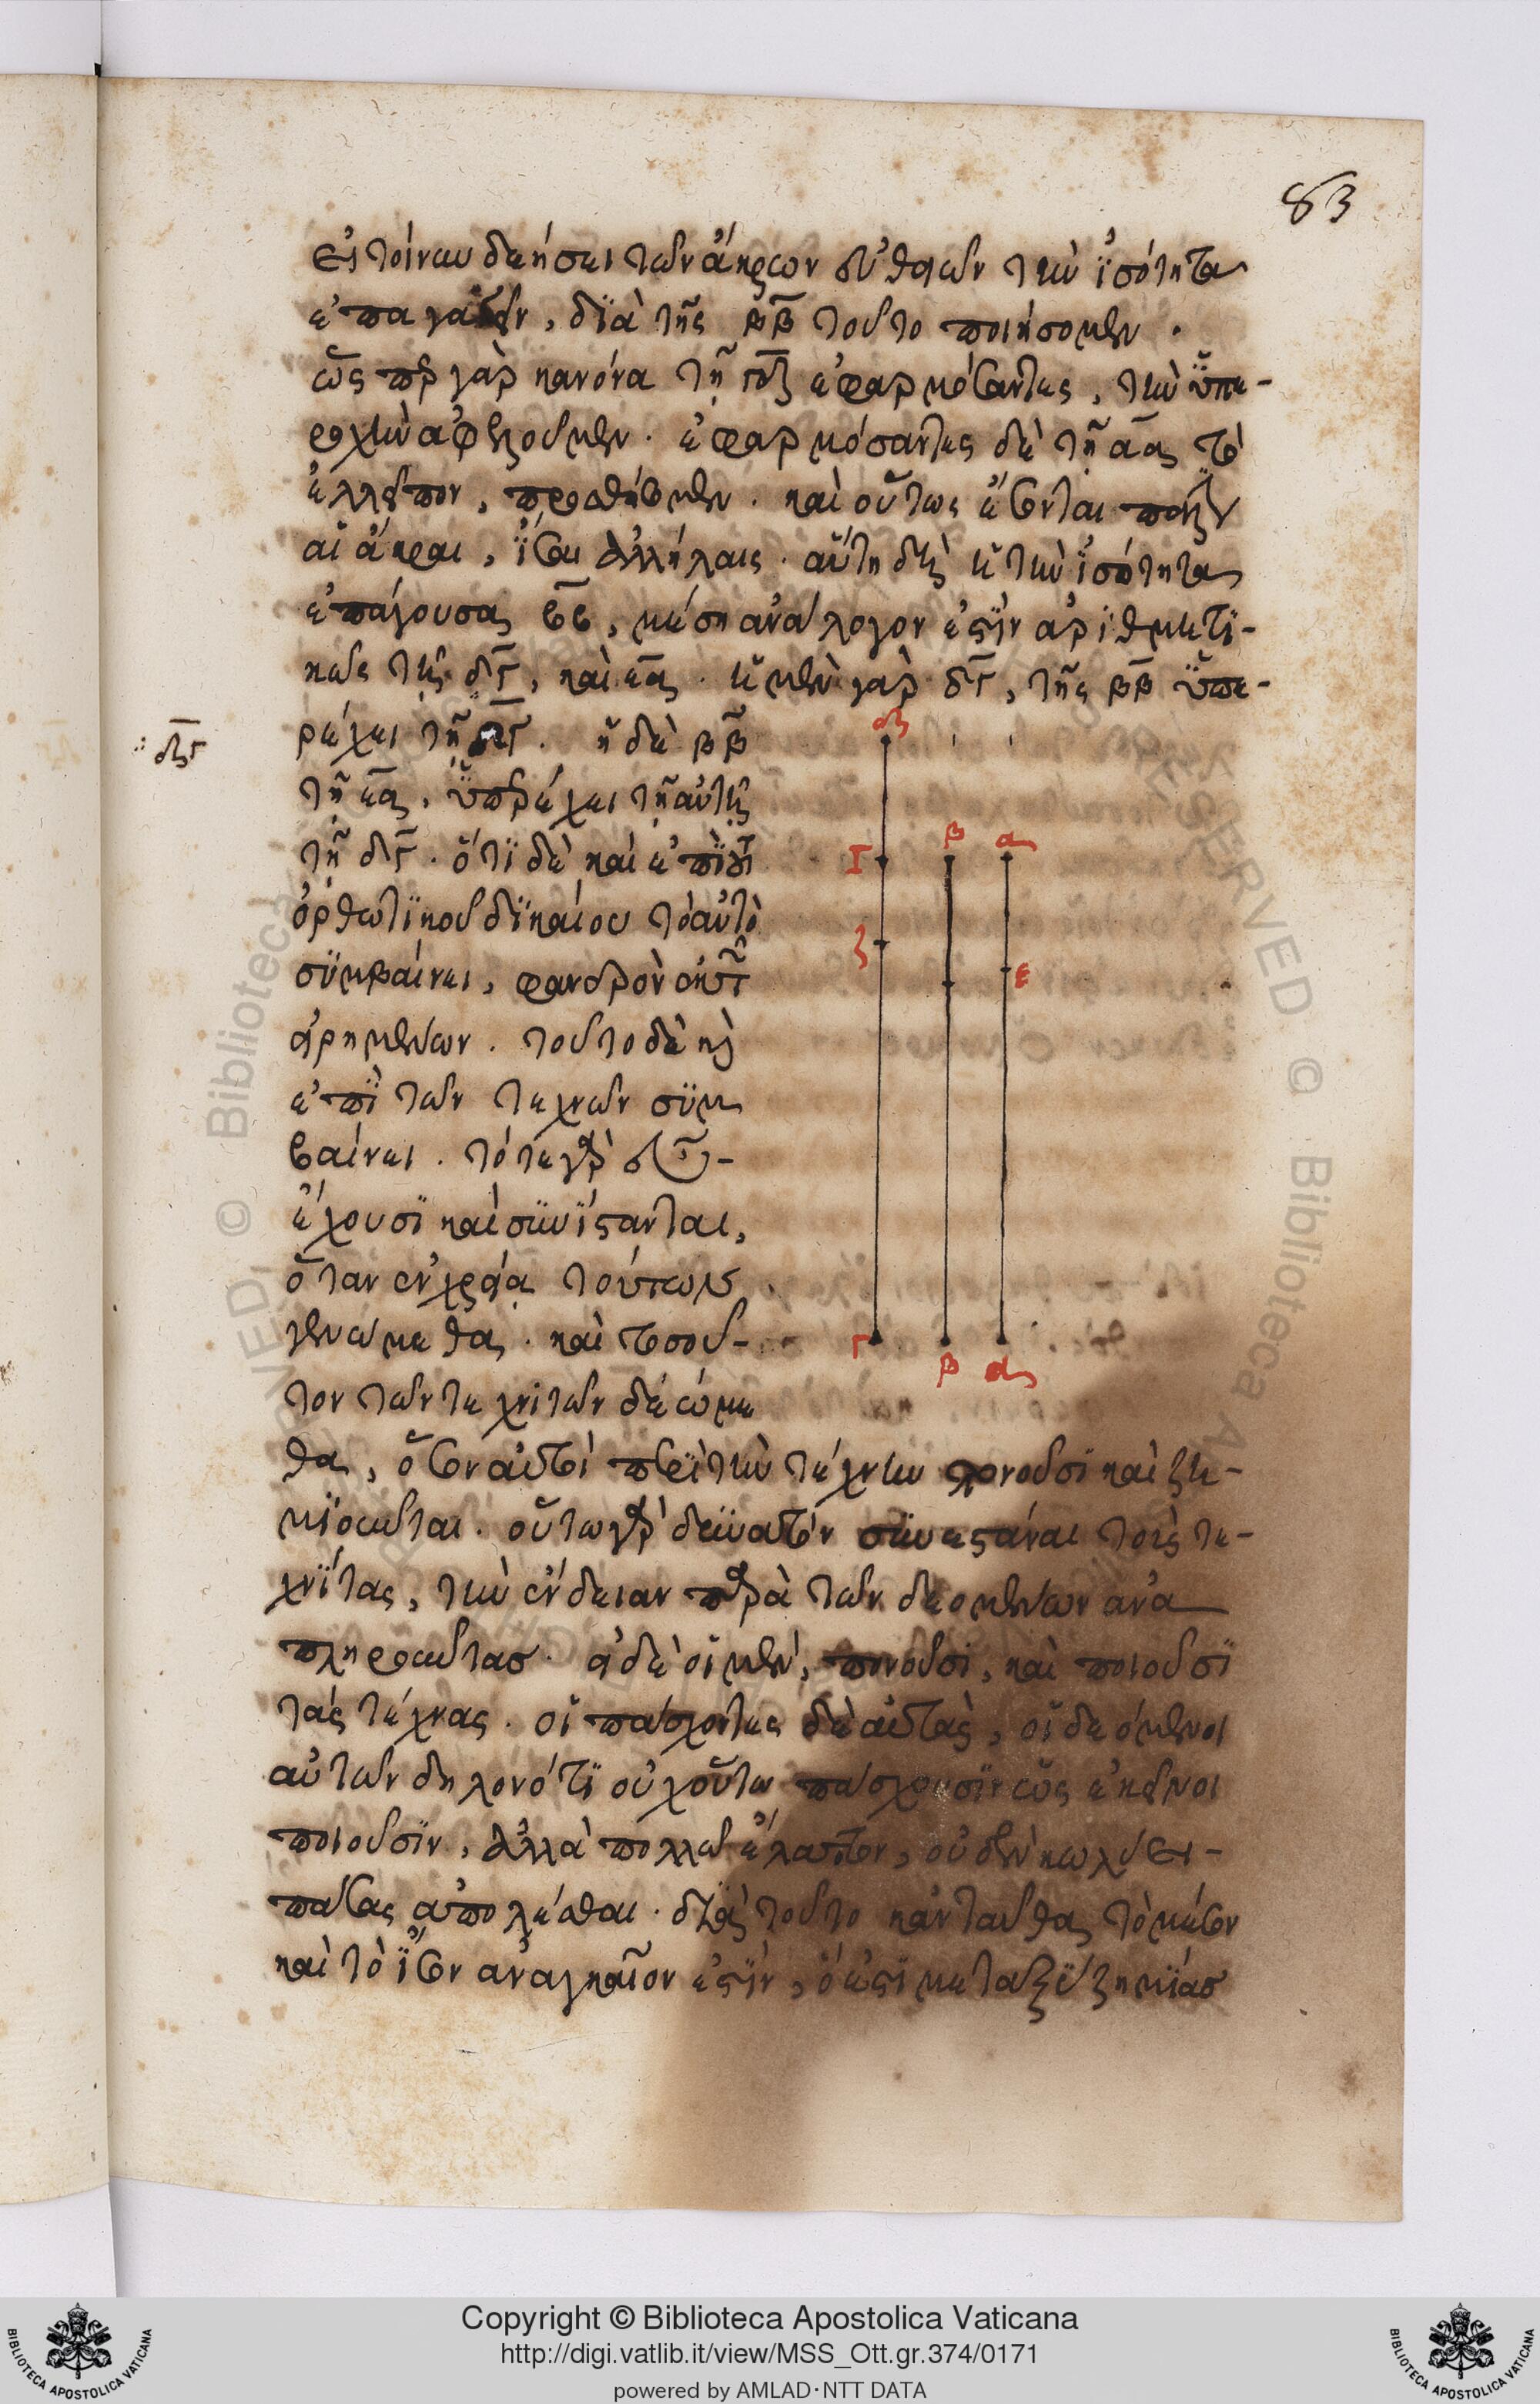 83
εἰ τοίνυν δεήσει τῶν ἄκρων εὐθειῶν τὴν ἰσότητα
ἐπαγαγεῖν, διὰ τῆς ββ τοῦτο ποιήσομεν.
ὥσπερ γὰρ κανόνα τῇ γδ ἐφαρμόσαντες, τὴν ὑπε-
ροχὴν ἀφελοῦμεν. ἐφαρμόσαντες δὲ τῇ αα τὸ
ἐλλεῖπον, προσθήσομεν. καὶ οὕτως ἔσονται πάλιν
αἱ ἄκραι, ἴσαι ἀλλήλαις. αὕτη δὲ ἡ τὴν ἰσότητα
ἐπάγουσα ββ, μέση ἀνάλογον ἐστὶν ἀριθμητι-
κῶς τῆς δγ, καὶ εα. ἡ μὲν γὰρ δγ, τῆς ββ ὑπε-
ρέχει τῇ
δζγ
ἡ δὲ ββ
τῆς εα, ὑπερέχει τῇ αὐτῇ
τῇ δγ. ὅτι δὲ καὶ ἐπὶ τοῦ
ὀρθωτικοῦ δικαίου τὸ αὐτὸ
συμβαίνει, φανερὸν ἐκ τῶν
εἰρημένων. τοῦτο δὲ καὶ
ἐπὶ τῶν τεχνῶν συμ
βαίνει. τότε γὰρ
ἔχουσι καὶ συνίστανται,
ὅταν ἐν χρείᾳ τούτων
γενώμεθα. καὶ τοσοῦ-
τον τῶν τεχνιτῶν δεώμε
θα, ὅσον αὐτοὶ περὶ τὴν τέχνην πονοῦσι καὶ ζη-
μιοῦνται. οὕτω γὰρ δυνατὸν συνεστάναι τοὺς τε-
χνίτας, τὴν ἔνδειαν παρὰ τῶν δεομένων ἀνα
πληροῦντας. εἰ δὲ οἱ μὲν, πονοῦσι, καὶ ποιοῦσι
τὰς τέχνας. οἱ πάσχοντες δὲ αὐτὰς, οἱ δεόμενοι
αὐτῶν δηλονότι οὐχ οὕτω πάσχουσιν ὡς ἐκεῖνοι
ποιοῦσιν, ἀλλὰ πολλῷ ἔλαττον, οὐδὲν κωλύει
πάσας ἀπολέσθαι. διὰ τοῦτο κἀνταῦθα τὸ μέσον
καὶ τὸ ἴσον ἀναγκαῖον ἐστὶν, ὅ ἐστι μεταξὺ ζημίας
δ
Γ
β
α
ζ
ε
Γ
β
α
Copyright © Biblioteca Apostolica Vaticana
http://digi.vatlib.it/view/MSS_Ott.gr.374/0171
powered by AMLAD·NTT DATA
BIBLIOTECA APOSTOLICA VATICANA
BIBLIOTECA APOSTOLICA VATICANA